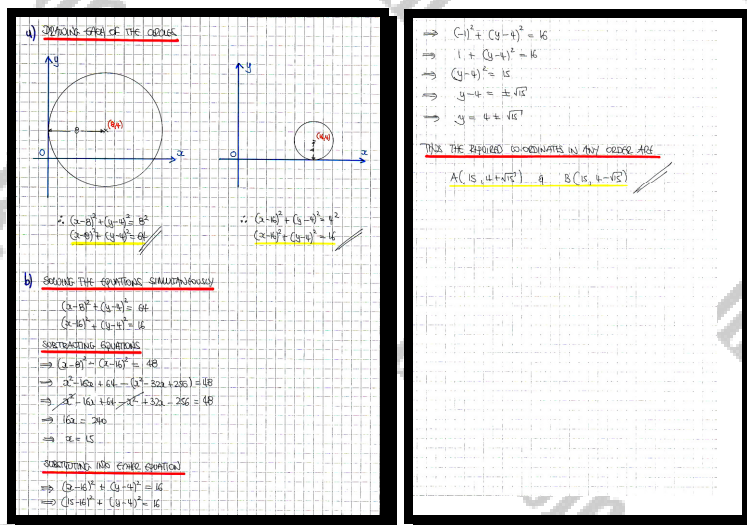 a) DRAWING EACH OF THE CIRCLES
y
8
(8,4)
x
O
y
(16,4)
x
O
∴ (x-8)² + (y-4)² = 8²
(x-8)² + (y-4)² = 64
∴ (x-16)² + (y-4)² = 4²
(x-16)² + (y-4)² = 16
b) SOLVING THE EQUATIONS SIMULTANEOUSLY
(x-8)² + (y-4)² = 64
(x-16)² + (y-4)² = 16
SUBTRACTING EQUATIONS
⇒ (x-8)² - (x-16)² = 48
⇒ x² - 16x + 64 - (x² - 32x + 256) = 48
⇒ x² - 16x + 64 - x² + 32x - 256 = 48
⇒ 16x = 240
⇒ x = 15
SUBSTITUTING INTO EITHER EQUATION
⇒ (x-16)² + (y-4)² = 16
⇒ (15-16)² + (y-4)² = 16
⇒ (-1)² + (y-4)² = 16
⇒ 1 + (y-4)² = 16
⇒ (y-4)² = 15
⇒ y-4 = ± √15
⇒ y = 4 ± √15
THUS THE REQUIRED CO-ORDINATES IN ANY ORDER ARE
A(15, 4+√15) & B(15, 4-√15)